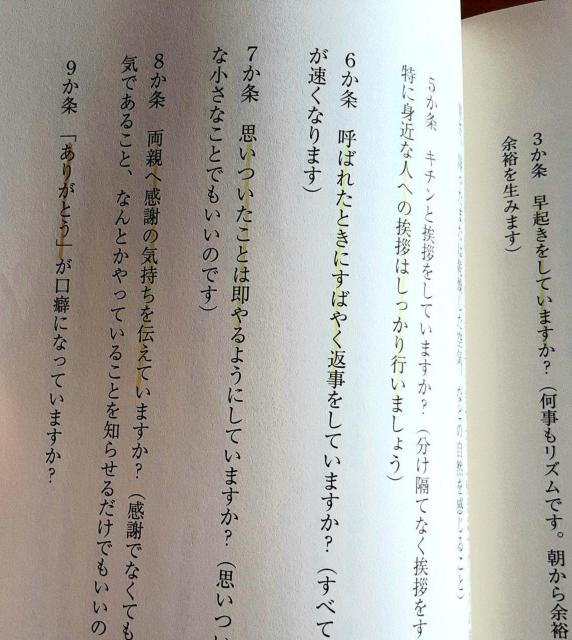 3か条　早起きをしていますか?(何事もリズムです。朝から余裕
余裕を生みます)
の自然を感じること)
5か条　キチンと挨拶をしていますか?(分け隔てなく挨拶をす
特に身近な人への挨拶はしっかり行いましょう)
6か条　呼ばれたときにすばやく返事をしていますか?(すべて
が速くなります)
7か条　思いついたことは即やるようにしていますか?(思いつい
な小さなことでもいいのです)
8か条　両親へ感謝の気持ちを伝えていますか?(感謝でなくても
気であること、なんとかやっていることを知らせるだけでもいいの
9か条　「ありがとう」が口癖になっていますか?